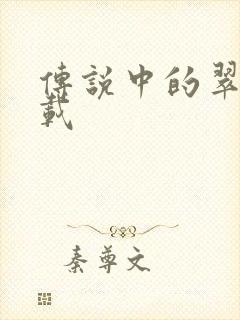 傳說中的翠
載
秦尊文